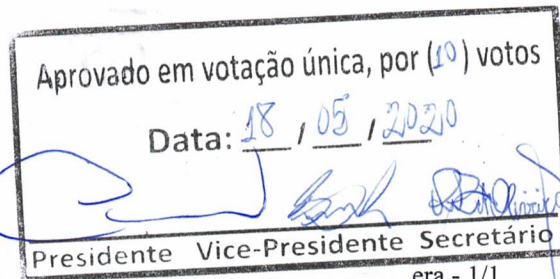 Aprovado em votação única, por (10) votos
Data: 18 / 05 / 2020
Presidente Vice-Presidente Secretário
era - 1/1